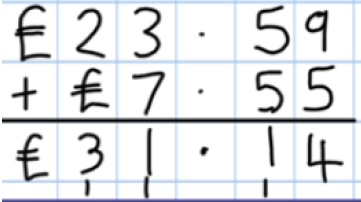 €23·59
+ €7·55
€31·14
1 1 1